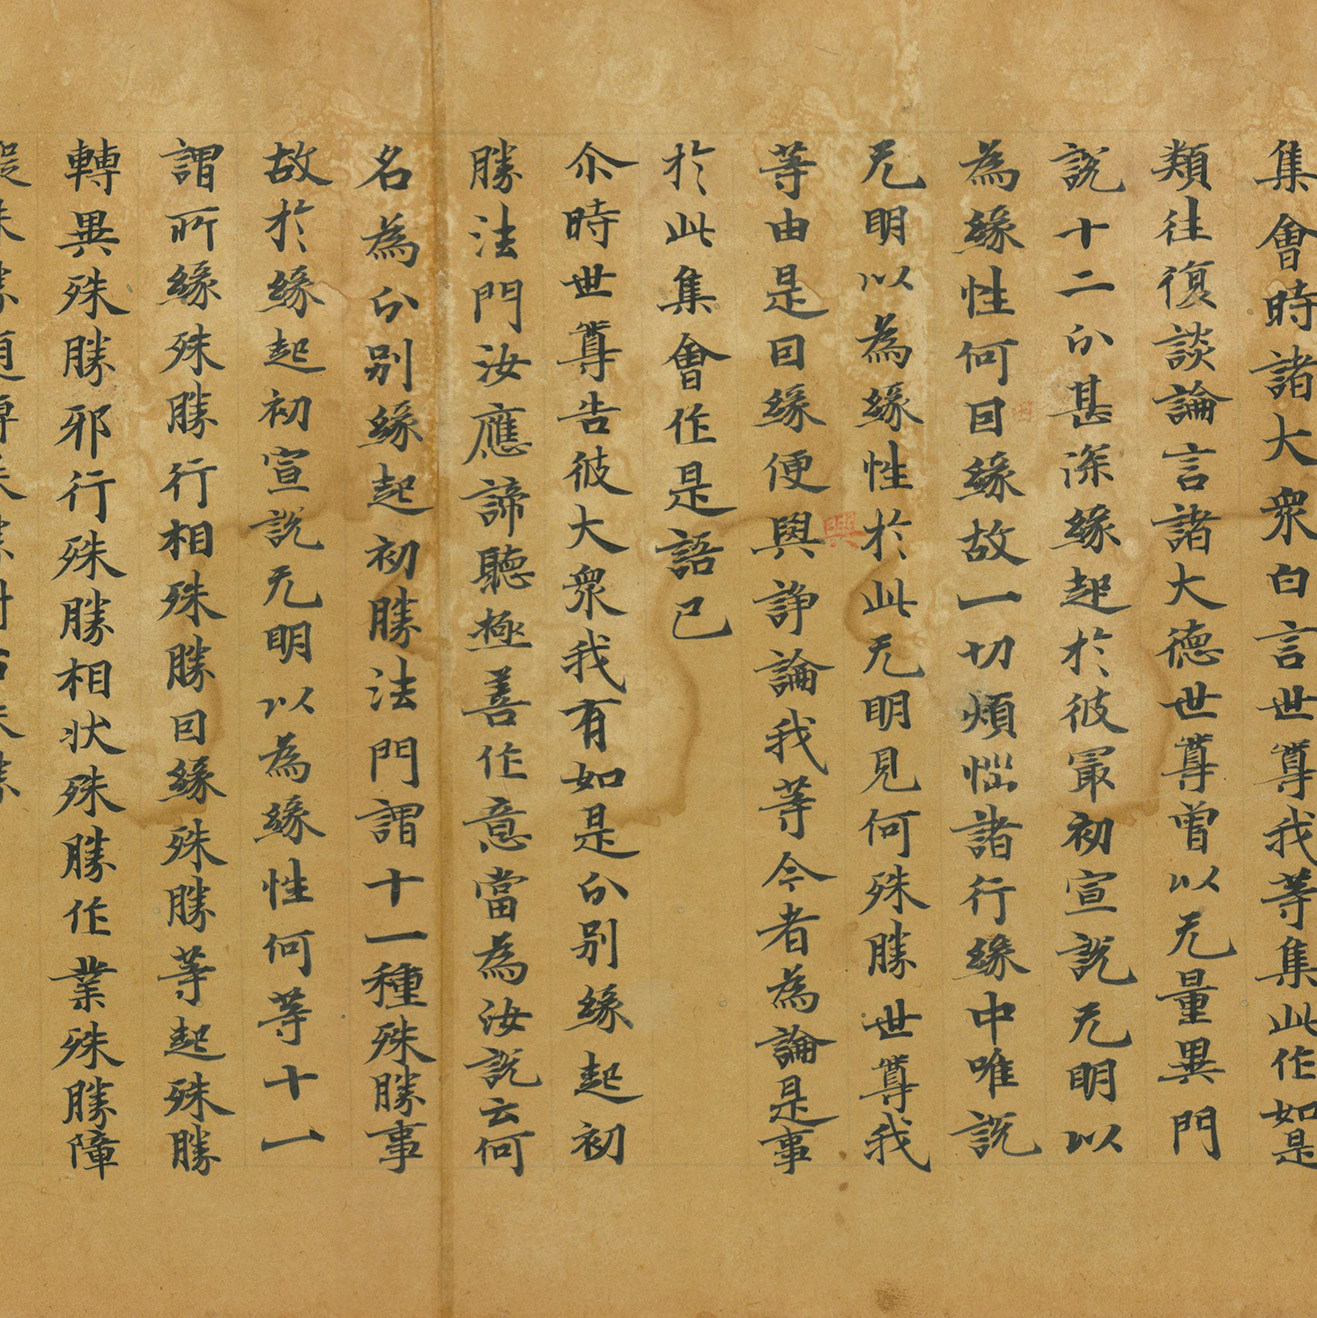 集會時諸大衆白言世尊我等集此作如是
類往復談論言諸大德世尊曾以无量異門
説十二分甚深緣起於彼最初宣説无明以
因
為緣性何因緣故一切煩惱諸行緣中唯説
无明以為緣性於此无明見何殊勝世尊我
興
等由是因緣便與諍論我等今者為論是事
於此集會作是語已
尒時世尊告彼大衆我有如是分別緣起初
勝法門汝應諦聽極善作意當為汝説云何
名為分別緣起初勝法門謂十一種殊勝事
故於緣起初宣説无明以為緣性何等十一
謂所緣殊勝行相殊勝因緣殊勝等起殊勝
轉異殊勝邪行殊勝相狀殊勝作業殊勝障